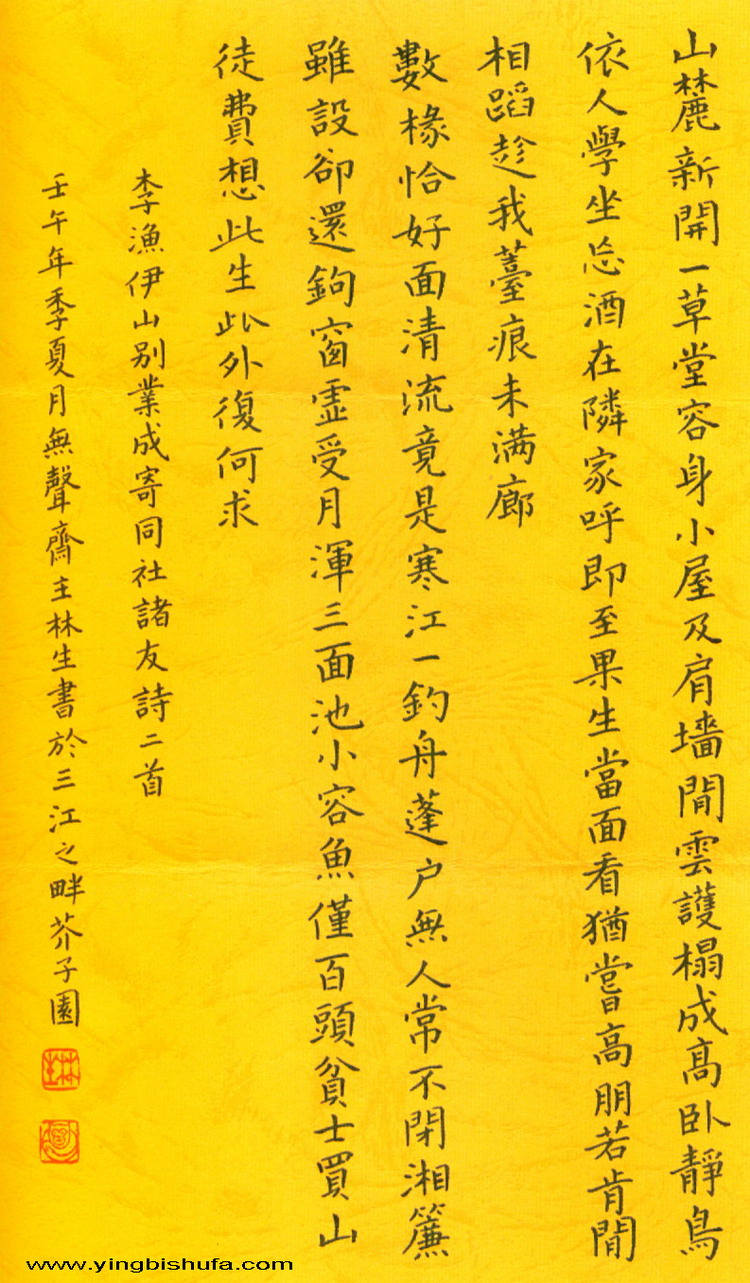 山麓新開一草堂容身小屋及肩墻閒雲護榻成高臥靜鳥
依人學坐忘酒在隣家呼即至果生當面看猶嘗高朋若肯閒
相蹈趁我薹痕未满廊
數椽恰好面清流竟是寒江一釣舟蓬户無人常不閉湘簾
雖設卻還鉤窗虛受月渾三面池小容魚僅百頭貧士買山
徒費想此生此外復何求
李漁伊山别業成寄同社諸友詩二首
壬午年季夏月無聲齋主林生書於三江之畔芥子園
www.yingbishufa.com